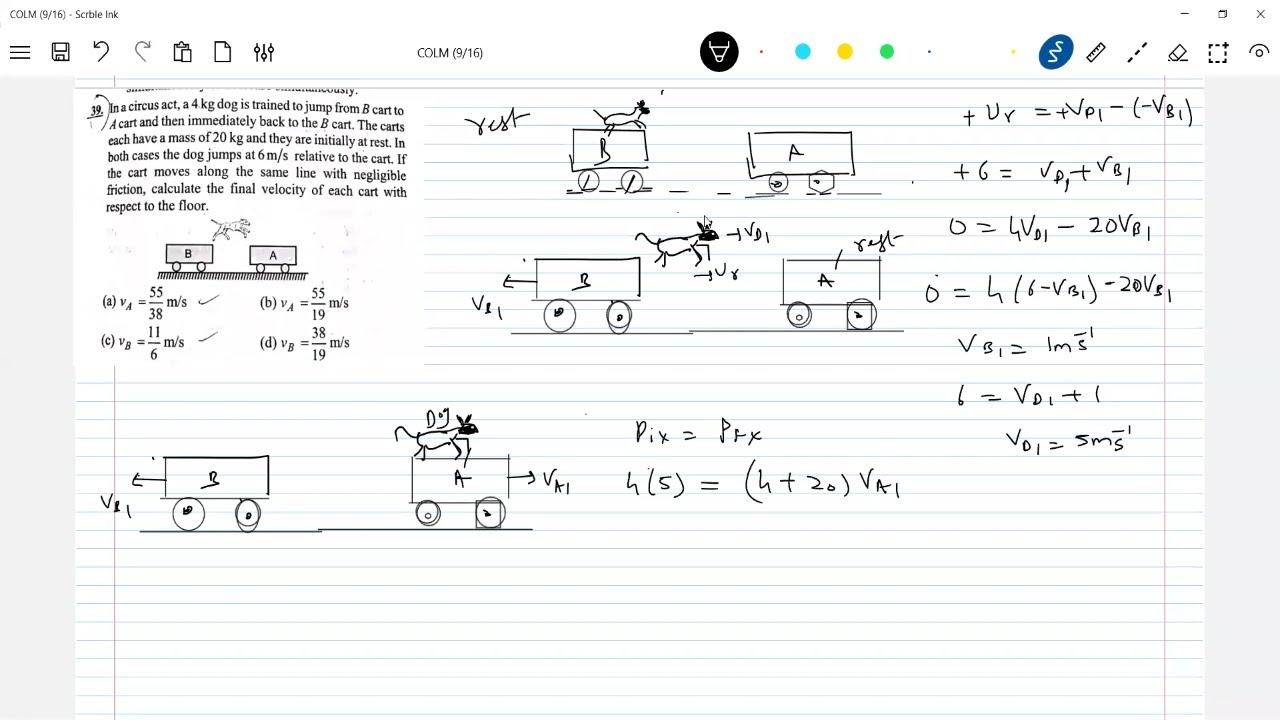 COLM (9/16) - Scrble Ink
COLM (9/16)
39. In a circus act, a 4 kg dog is trained to jump from B cart to
A cart and then immediately back to the B cart. The carts
each have a mass of 20 kg and they are initially at rest. In
both cases the dog jumps at 6 m/s relative to the cart. If
the cart moves along the same line with negligible
friction, calculate the final velocity of each cart with
respect to the floor.
B A
(a) v_A = 55/38 m/s ✓ (b) v_A = 55/19 m/s
(c) v_B = 11/6 m/s ✓ (d) v_B = 38/19 m/s
rest
B A
V_B1 B → V_D1 → U_r A rest
+ U_r = + V_D1 - (-V_B1)
+ 6 = V_D1 + V_B1
0 = 4V_D1 - 20V_B1
0 = 4(6 - V_B1) - 20V_B1
V_B1 = 1 m s⁻¹
6 = V_D1 + 1
V_D1 = 5 m s⁻¹
Dog
V_B1 B A → V_A1
P_ix = P_fx
4(5) = (4 + 20) V_A1